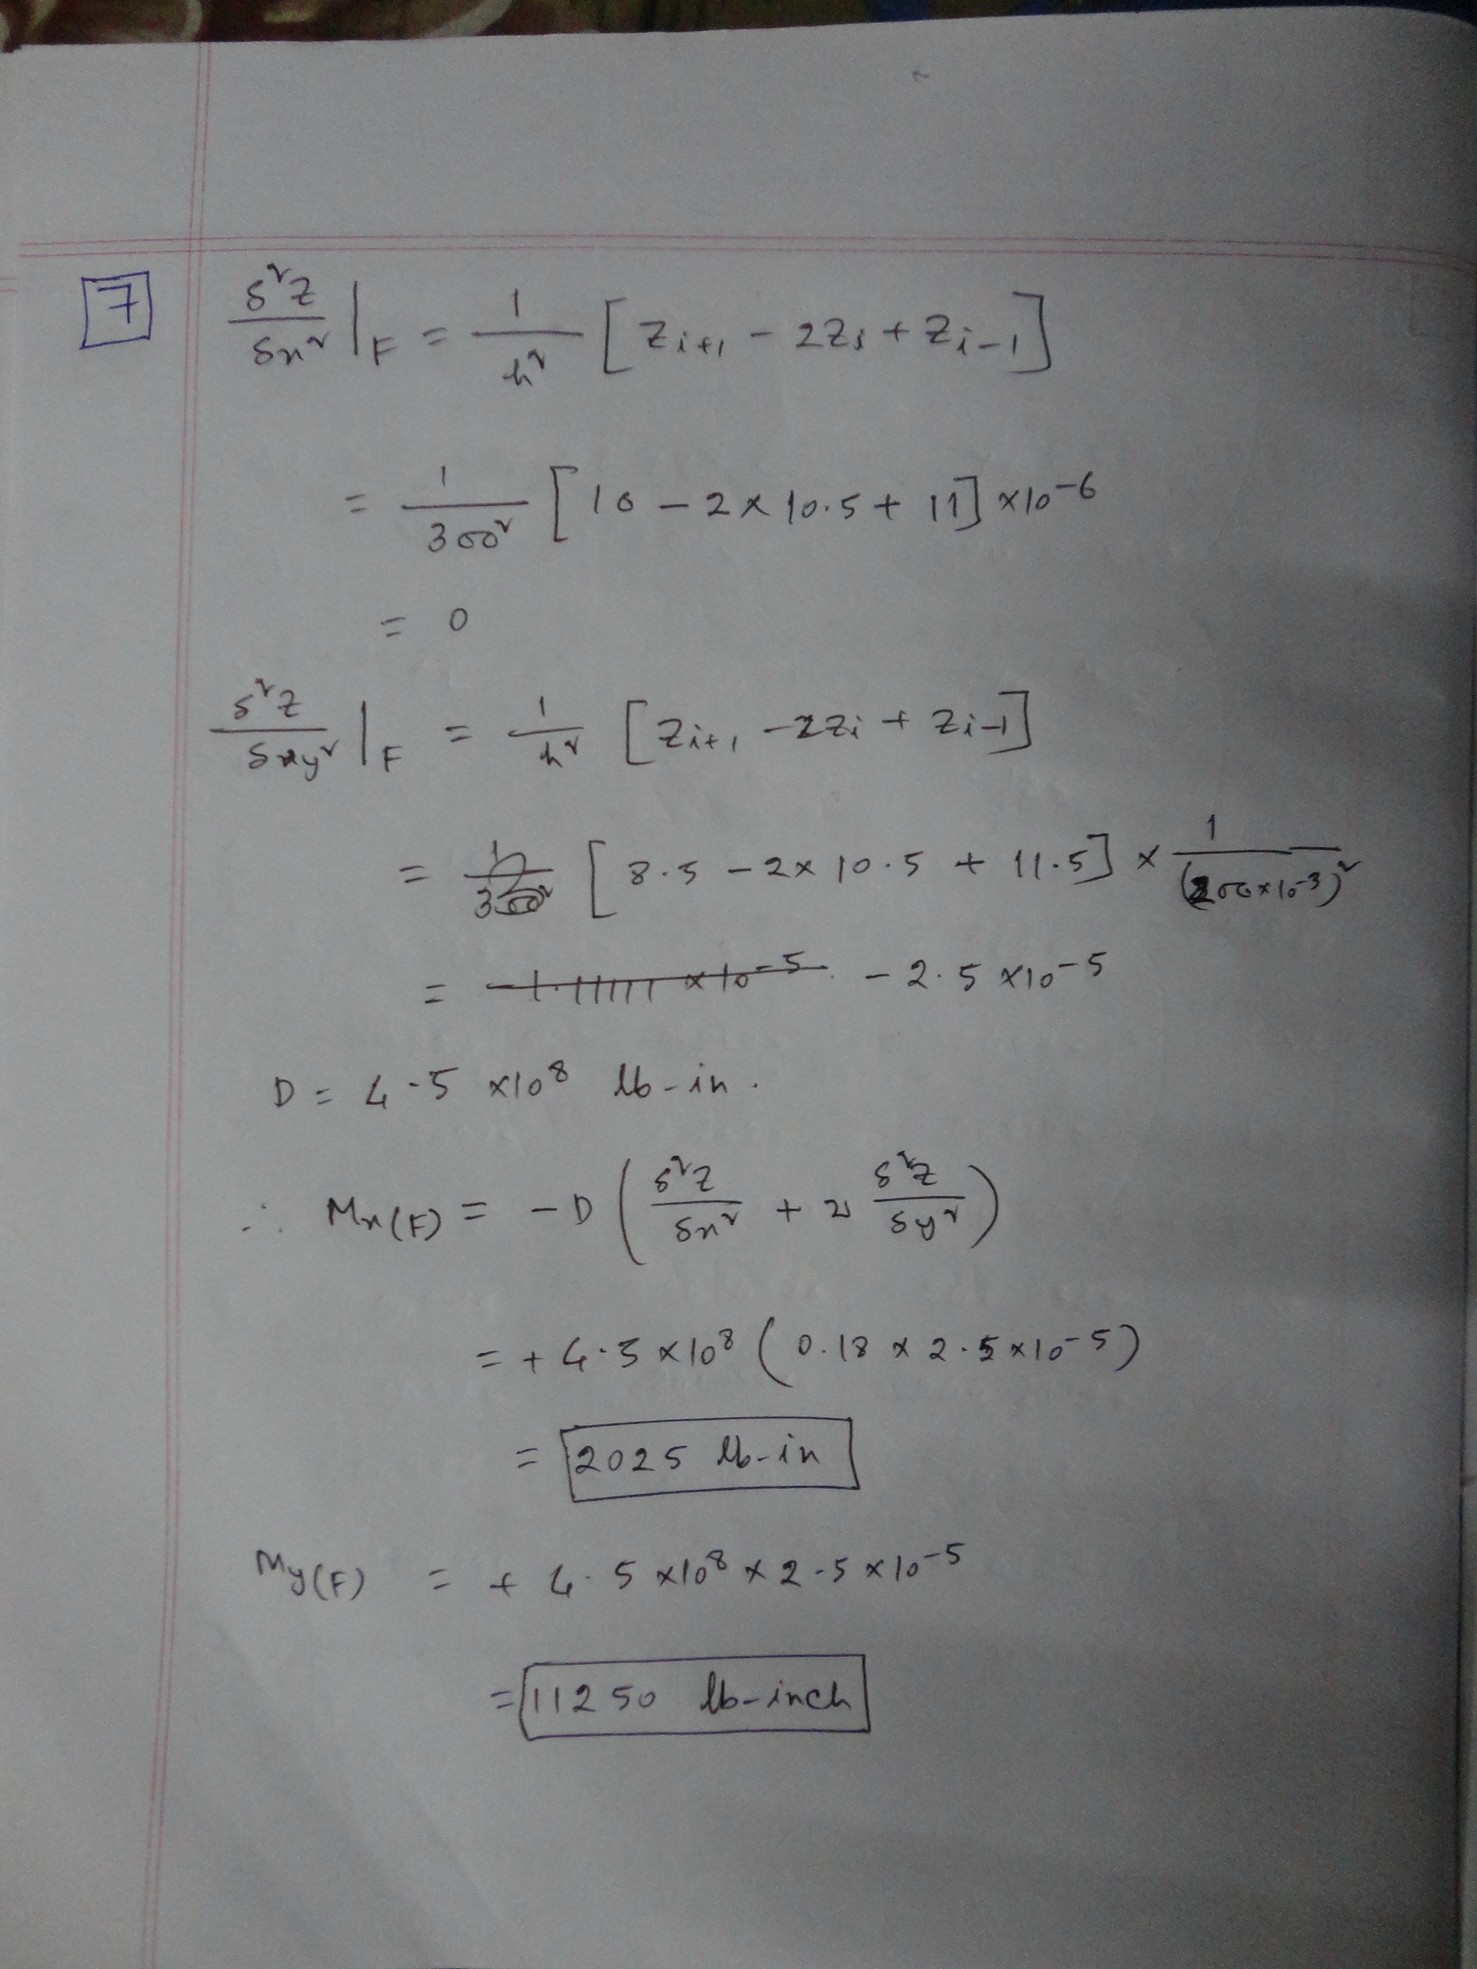 7 δ²z/δx² |F = 1/h² [Zi+1 - 2Zi + Zi-1]
= 1/300² [10 - 2 × 10.5 + 11] × 10⁻⁶
= 0
δ²z/δy² |F = 1/h² [Zi+1 - 2Zi + Zi-1]
= [8.5 - 2 × 10.5 + 11.5] × 1/(200 × 10⁻³)²
= -1.11111 × 10⁻⁵ - 2.5 × 10⁻⁵
D = 4.5 × 10⁸ lb-in.
∴ Mx(F) = -D (δ²z/δx² + ν δ²z/δy²)
= + 4.5 × 10⁸ (0.18 × 2.5 × 10⁻⁵)
= 2025 lb-in
My(F) = + 4.5 × 10⁸ × 2.5 × 10⁻⁵
= 11250 lb-inch